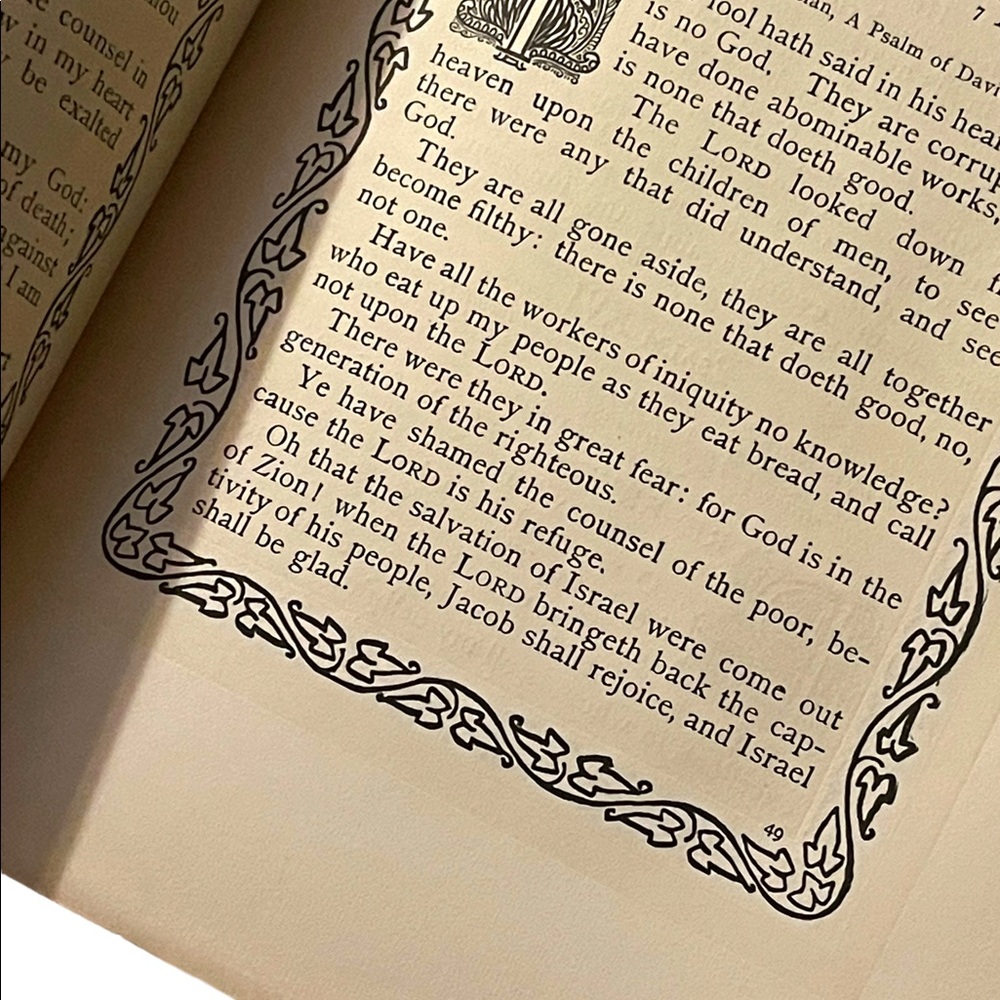 counsel in
in my heart
be exalted
my God:
of death;
against
I am
A Psalm of
hath said in his
is no God. They are
have done abominable works,
is none that doeth good.
The LORD looked down
heaven upon the children of men, to see
there were any that did understand, and
God.
They are all gone aside, they are all together
become filthy: there is none that doeth good, no,
not one.
Have all the workers of iniquity no knowledge?
who eat up my people as they eat bread, and call
not upon the LORD.
There were they in great fear: for God is in the
generation of the righteous.
Ye have shamed the counsel of the poor, be-
cause the LORD is his refuge.
Oh that the salvation of Israel were come out
of Zion! when the LORD bringeth back the cap-
tivity of his people, Jacob shall rejoice, and Israel
shall be glad.
49